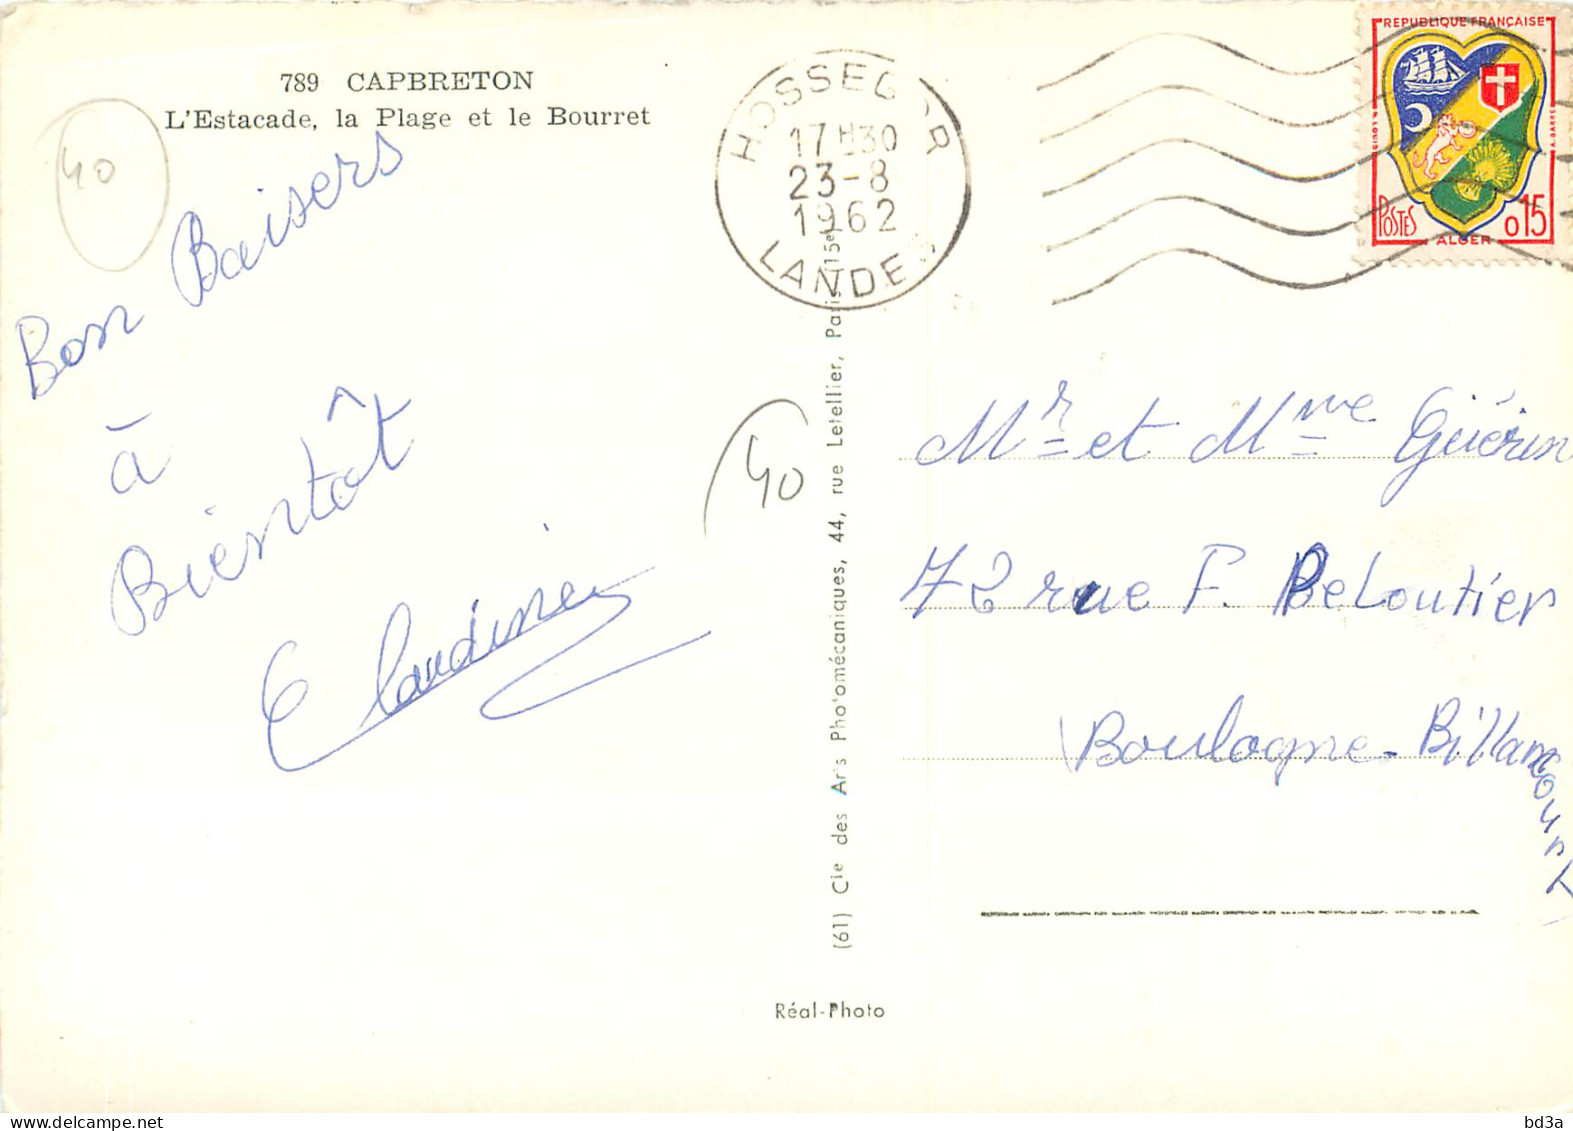 789 CAPBRETON
L'Estacade, la Plage et le Bourret
40
Bon Baisers
à
Bientôt
Claudine
40
HOSSEGOR
17H30
23-8
1962
LANDES
REPUBLIQUE FRANÇAISE
POSTES
ALGER
0,15
Mr et Mme Guérin
72 rue F. Peloutier
Boulogne-Billancourt
(61) Cie des Arts Photomécaniques, 44, rue Letellier, Paris 15e
Réal-Photo
www.delcampe.net
bd3a